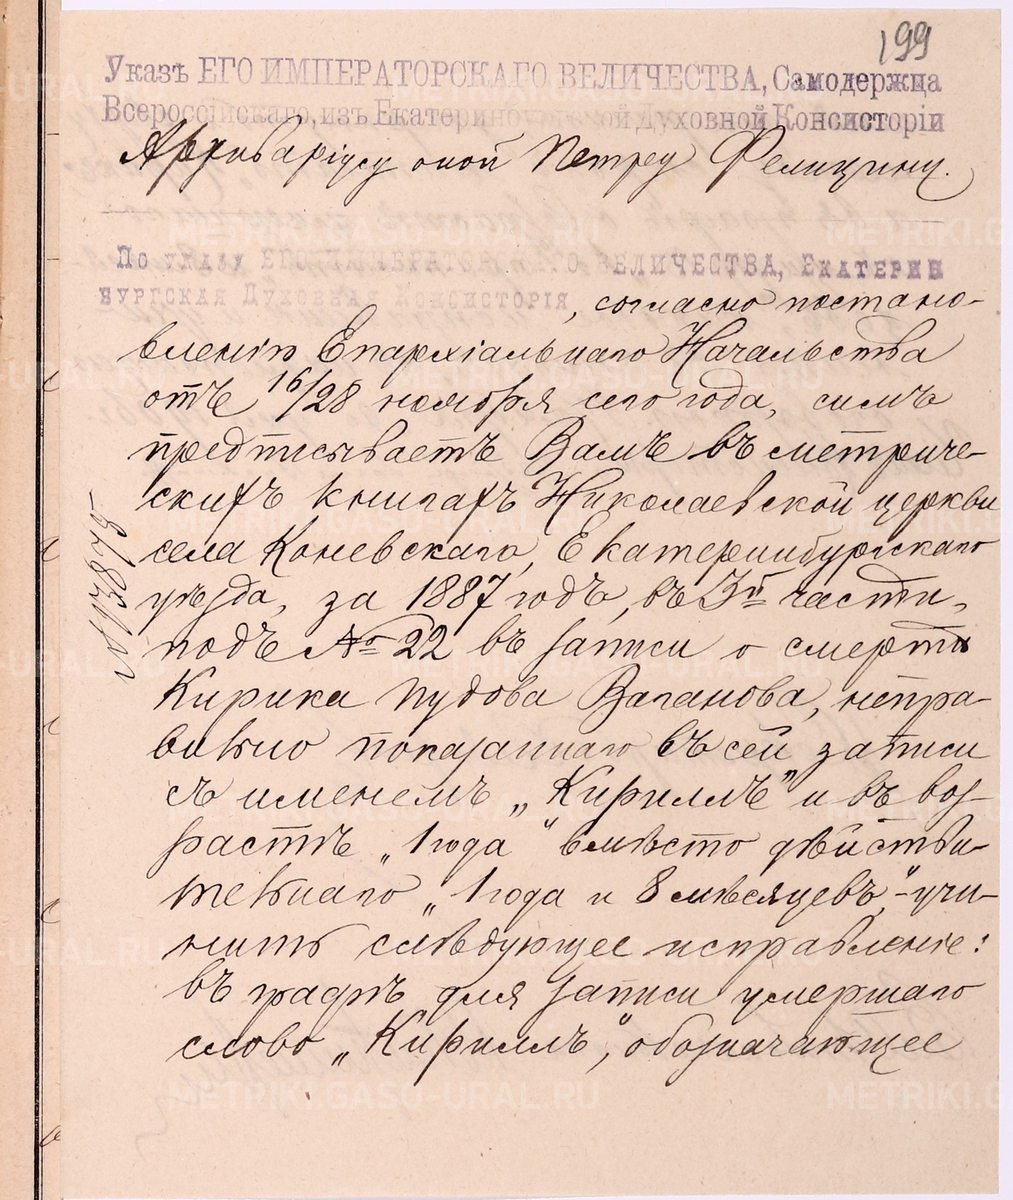 199
Указъ ЕГО ИМПЕРАТОРСКАГО ВЕЛИЧЕСТВА, Самодержца
Всероссійскаго, изъ Екатеринбургской Духовной Консисторіи
Архиваріусу оной Петру Фелицину.
По указу ЕГО ИМПЕРАТОРСКАГО ВЕЛИЧЕСТВА, ЕКАТЕРИН
БУРГСКАЯ ДУХОВНАЯ КОНСИСТОРІЯ, согласно постано-
вленію Епархіальнаго Начальства
отъ 16/28 ноября сего года, симъ
предписываетъ Вамъ въ метриче-
скихъ книгахъ Николаевской церкви
села Коневскаго, Екатеринбургскаго
уѣзда, за 1887 годъ, въ 3й части,
подъ № 22 въ записи о смерти
Кирика Пудова Ваганова, непра-
вильно показаннаго въ сей записи
съ именемъ „Кириллъ" и въ воз-
растѣ „1 года" вмѣсто дѣйстви-
тельнаго „1 года и 8 мѣсяцевъ",- учи-
нить слѣдующее исправленіе:
въ графѣ для записи умершаго
слово „Кириллъ", обозначающее
№ 19387/5-
METRIKI.GASU-URAL.RU